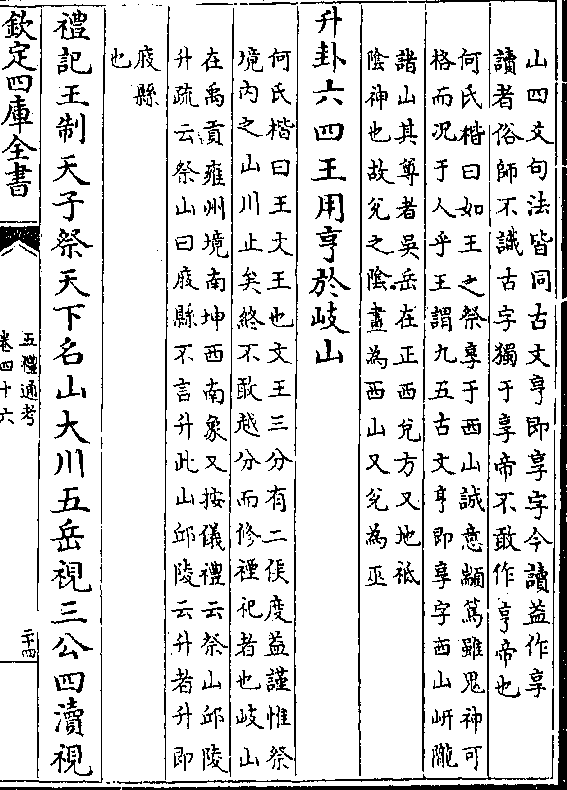 山四文句法皆同古文亨即享字今讀益作享
讀者俗師不識古字獨于享帝不敢作亨帝也
何氏楷曰如王之祭享于西山誠意顒篤雖鬼神可
格而况于人乎王謂九五古文亨即享字西山岍隴
諸山其尊者吳岳在正西兌方又地祗
陰神也故兌之陰畫為西山又兌為巫
升卦六四王用亨於岐山
何氏楷曰王文王也文王三分有二侯度益謹惟祭
境內之山川止矣終不敢越分而修禋祀者也岐山
在禹貢雍州境南坤西南象又按儀禮云祭山邱陵
升疏云祭山曰庪縣不言升此山邱陵云升者升即
庪縣
也
禮記王制天子祭天下名山大川五岳視三公四瀆視
欽定四庫全書
五禮通考
卷四十六
二十四